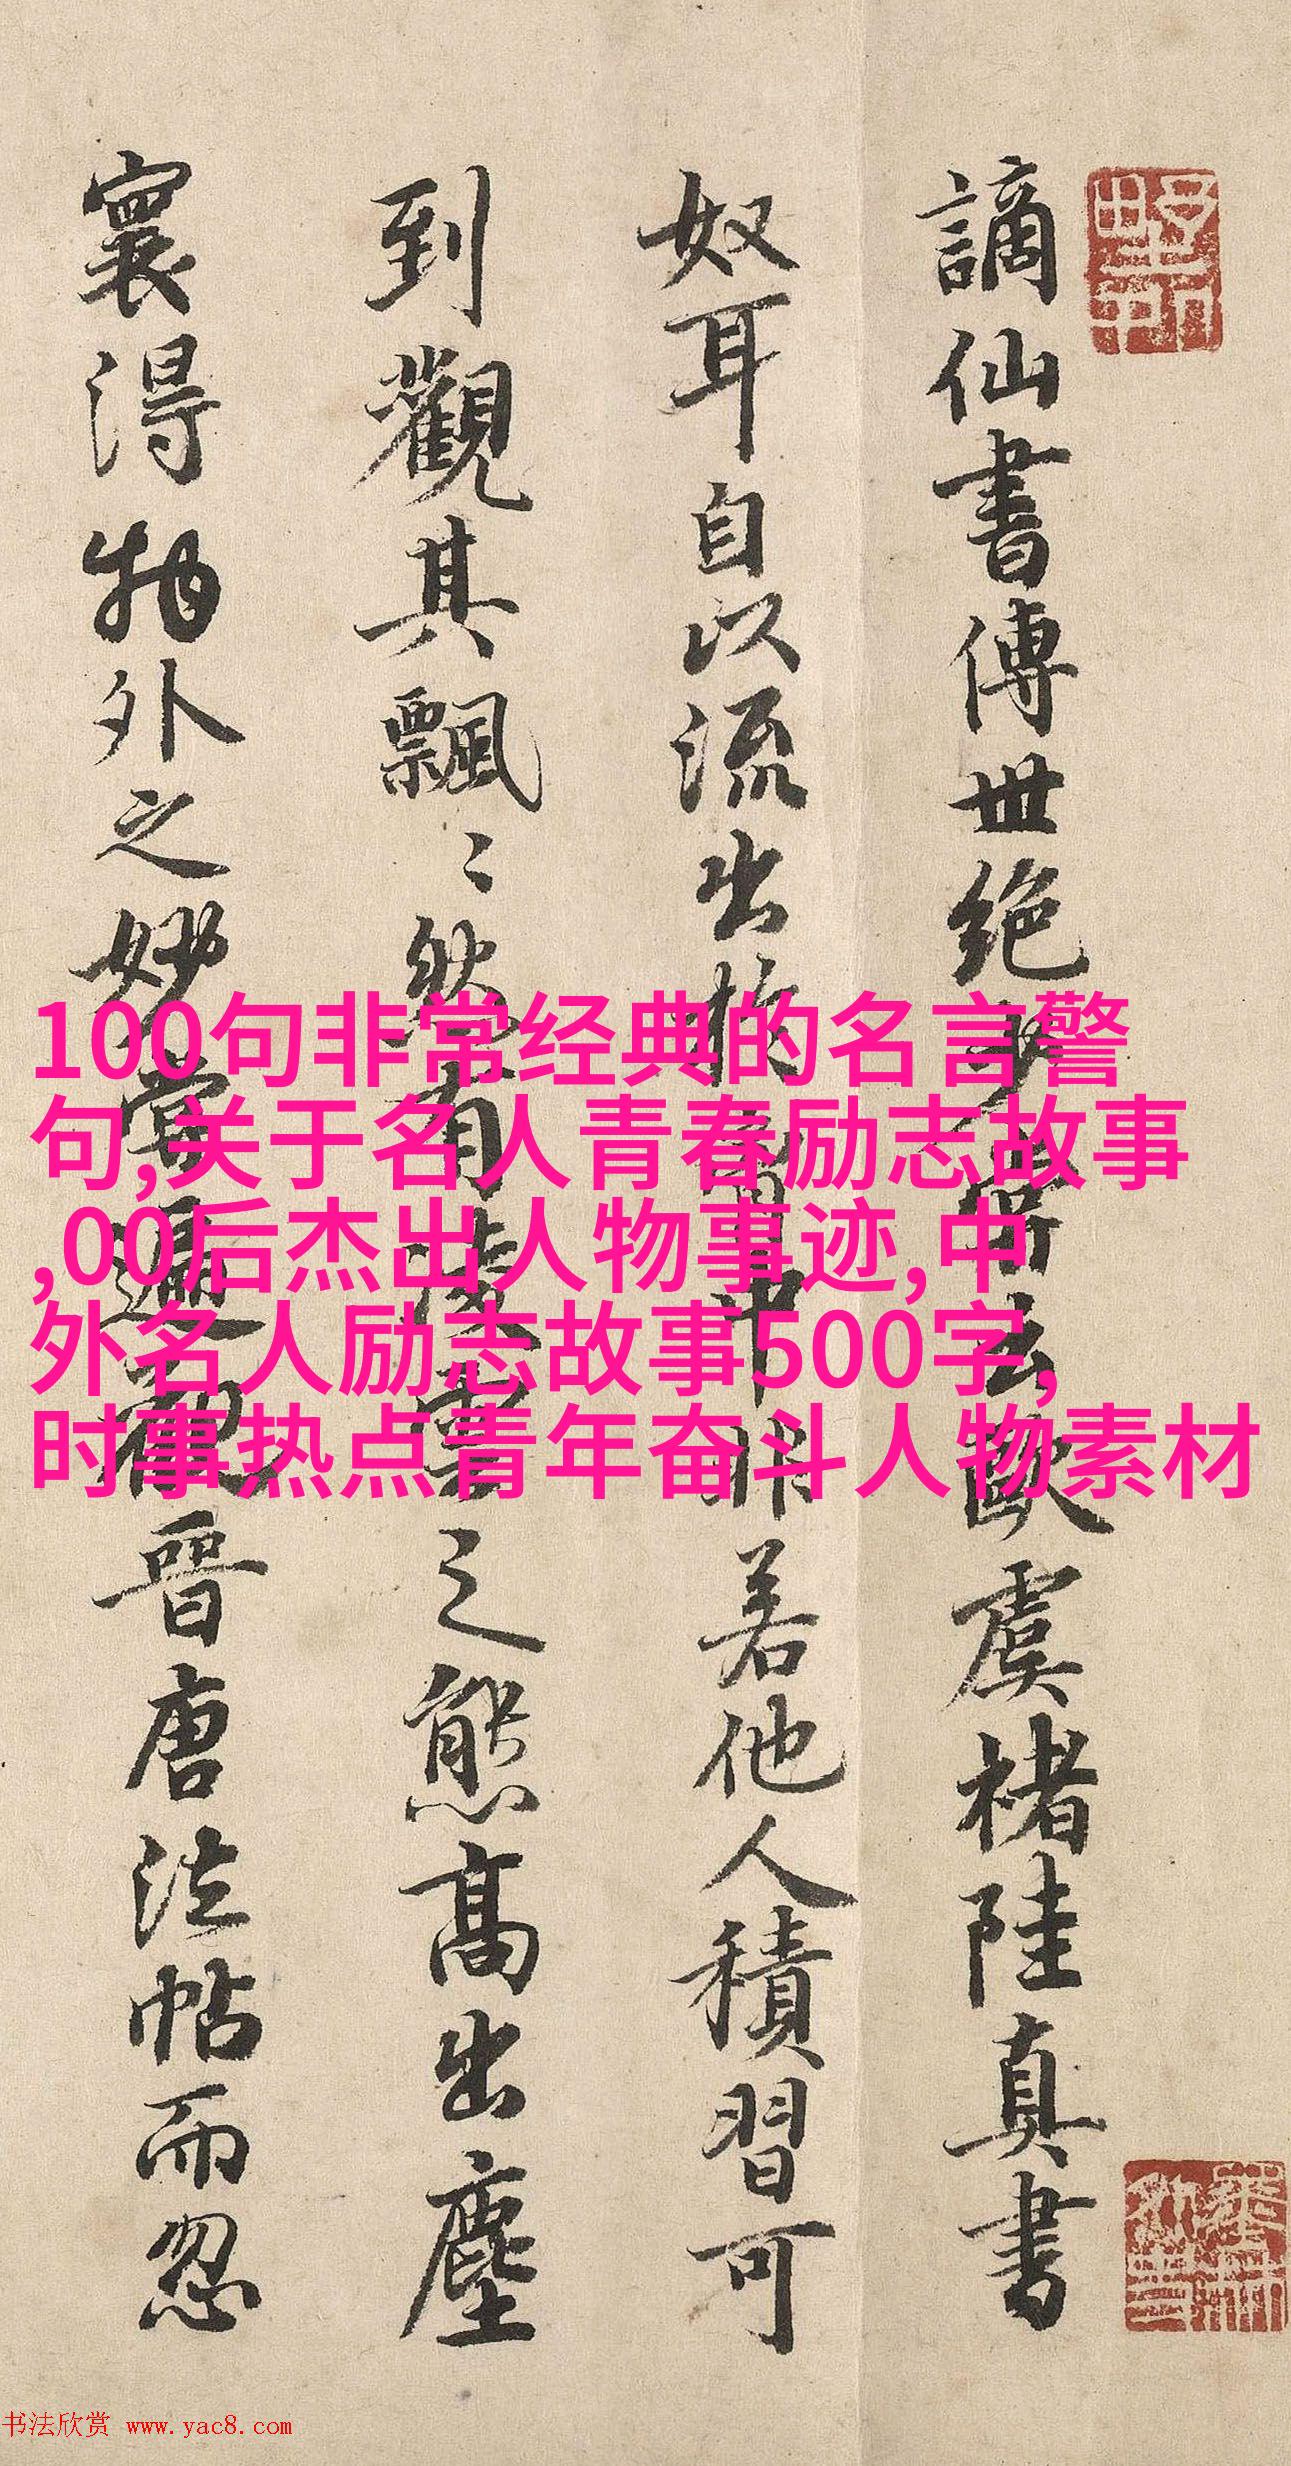 謫仙書傳世絕少嘗云歐虞褚陸真書
奴耳自以流出於胸中非若他人積習可
到觀其飄〻然有凌雲之態高出塵
寰得物外之妙嘗遍觀晉唐法帖而忽
100句非常经典的名言警
句,关于名人青春励志故事
,00后杰出人物事迹,中
外名人励志故事500字,
时事热点青年奋斗人物素材
书法欣赏 www.yac8.com